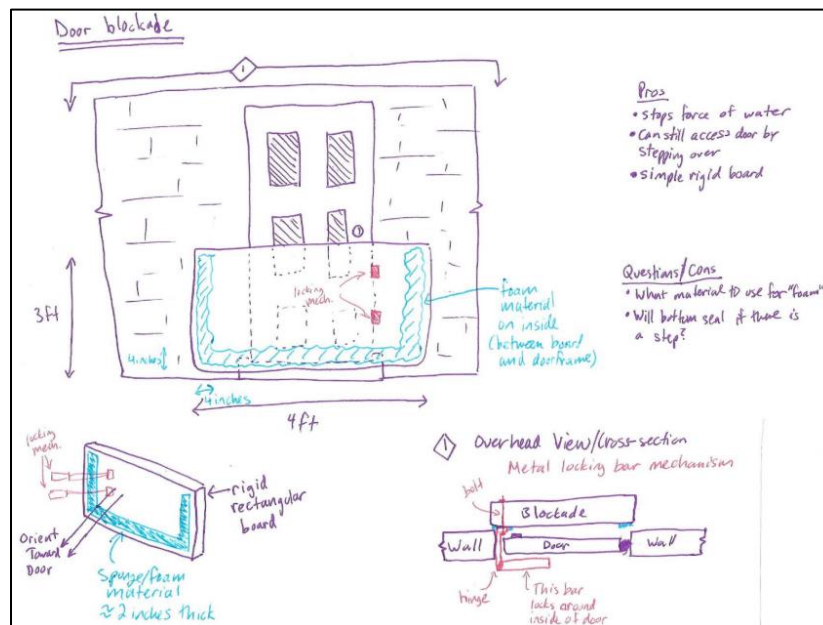 Door blockade
1
Pros
• stops force of water
• Can still access door by
stepping over
• simple rigid board
Questions/Cons
• What material to use for "foam"
• Will bottom seal if there is
a step?
3ft
4 inches
locking
mech.
foam
material
on inside
(between board
and doorframe)
4 inches
4ft
locking
mech.
rigid
rectangular
board
Orient
Toward
Door
Sponge/foam
material
≈ 2 inches thick
1 Overhead View/Cross-section
Metal locking bar mechanism
bolt
Blockade
Wall
Door
Wall
hinge
This bar
locks around
inside of door